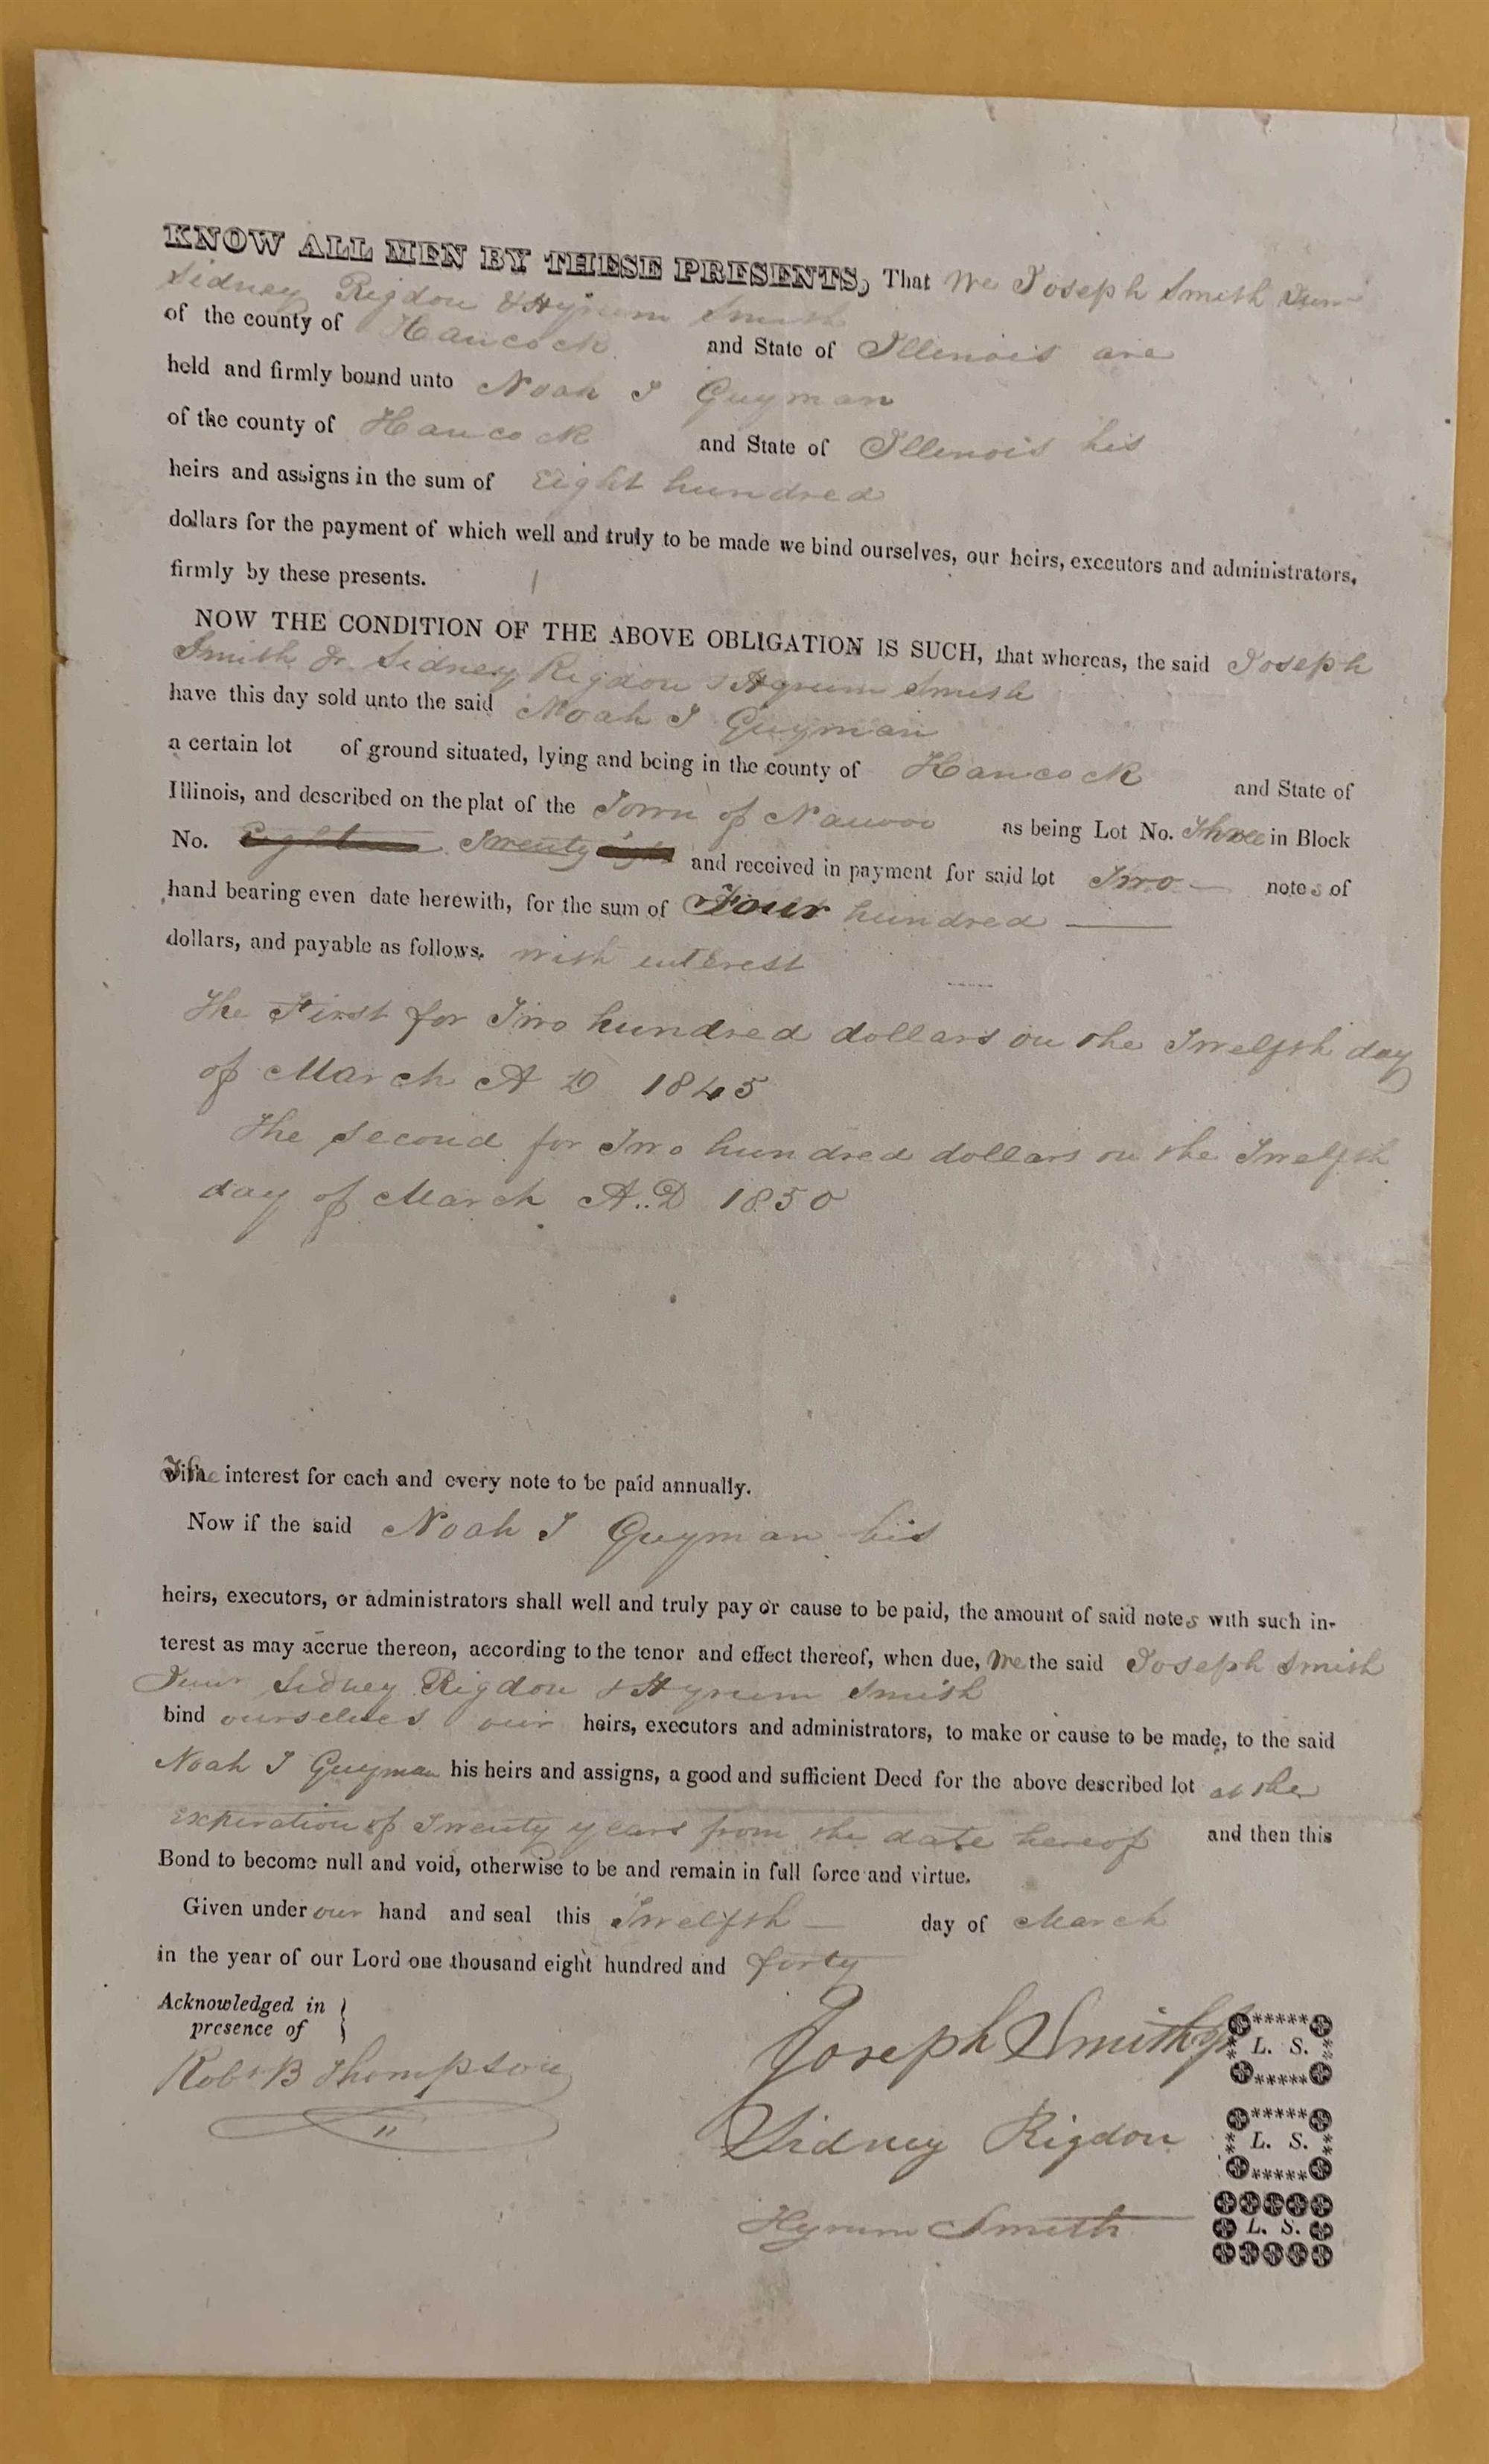 KNOW ALL MEN BY THESE PRESENTS, That We Joseph Smith Junr
Sidney Rigdon & Hyrum Smith
of the county of Hancock and State of Illenois are
held and firmly bound unto Noah J Guyman
of the county of Hancock and State of Illenois his
heirs and assigns in the sum of Eight hundred
dollars for the payment of which well and truly to be made we bind ourselves, our heirs, executors and administrators,
firmly by these presents.
NOW THE CONDITION OF THE ABOVE OBLIGATION IS SUCH, that whereas, the said Joseph
Smith Jr. Sidney Rigdon & Hyrum Smith
have this day sold unto the said Noah J Guyman
a certain lot of ground situated, lying and being in the county of Hancock and State of
Illinois, and described on the plat of the Town of Nauvoo as being Lot No. Three in Block
No. Eighteen Twenty eight and received in payment for said lot Two notes of
hand bearing even date herewith, for the sum of Four hundred
dollars, and payable as follows. with interest
The First for Two hundred dollars on the Twelfth day
of March A D 1845
The Second for Two hundred dollars on the Twelfth
day of March A..D 1850
The interest for each and every note to be paid annually.
Now if the said Noah J Guyman his
heirs, executors, or administrators shall well and truly pay or cause to be paid, the amount of said notes with such in-
terest as may accrue thereon, according to the tenor and effect thereof, when due, We the said Joseph Smith
Junr Sidney Rigdon & Hyrum Smith
bind ourselves our heirs, executors and administrators, to make or cause to be made, to the said
Noah J Guyman his heirs and assigns, a good and sufficient Deed for the above described lot at the
expiration of Twenty years from the date hereof and then this
Bond to become null and void, otherwise to be and remain in full force and virtue.
Given under our hand and seal this Twelfth day of March
in the year of our Lord one thousand eight hundred and forty
Acknowledged in
presence of
Robt B Thompson
Joseph Smith Jr L. S.
Sidney Rigdon L. S.
Hyrum Smith L. S.